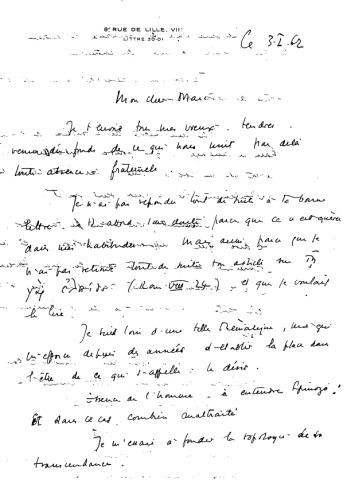 5, RUE DE LILLE. VII
LITTRÉ 30-01
Ce 3.I.62
Mon cher
Je t'envoie tous mes voeux tendres
venus du fonds de ce qui nous unit par delà
toute absence fraternelle.
Je n'ai pas répondu tout de suite à ta bonne
lettre. D'abord, parce que ce n'est guère
dans mes habitudes Mais aussi parce que je
n'ai pas retrouvé tout de suite ton article
et que je voulais
le lire.
Je suis loin d'une telle moi qui
m'efforce depuis des années d'établir la place dans
l'être de ce qui s'appelle : le désir.
Essence de l'homme à entendre Spinoza!
Et dans ce cas, combien
Je m'essaie à fonder la topologie de sa
transcendance.